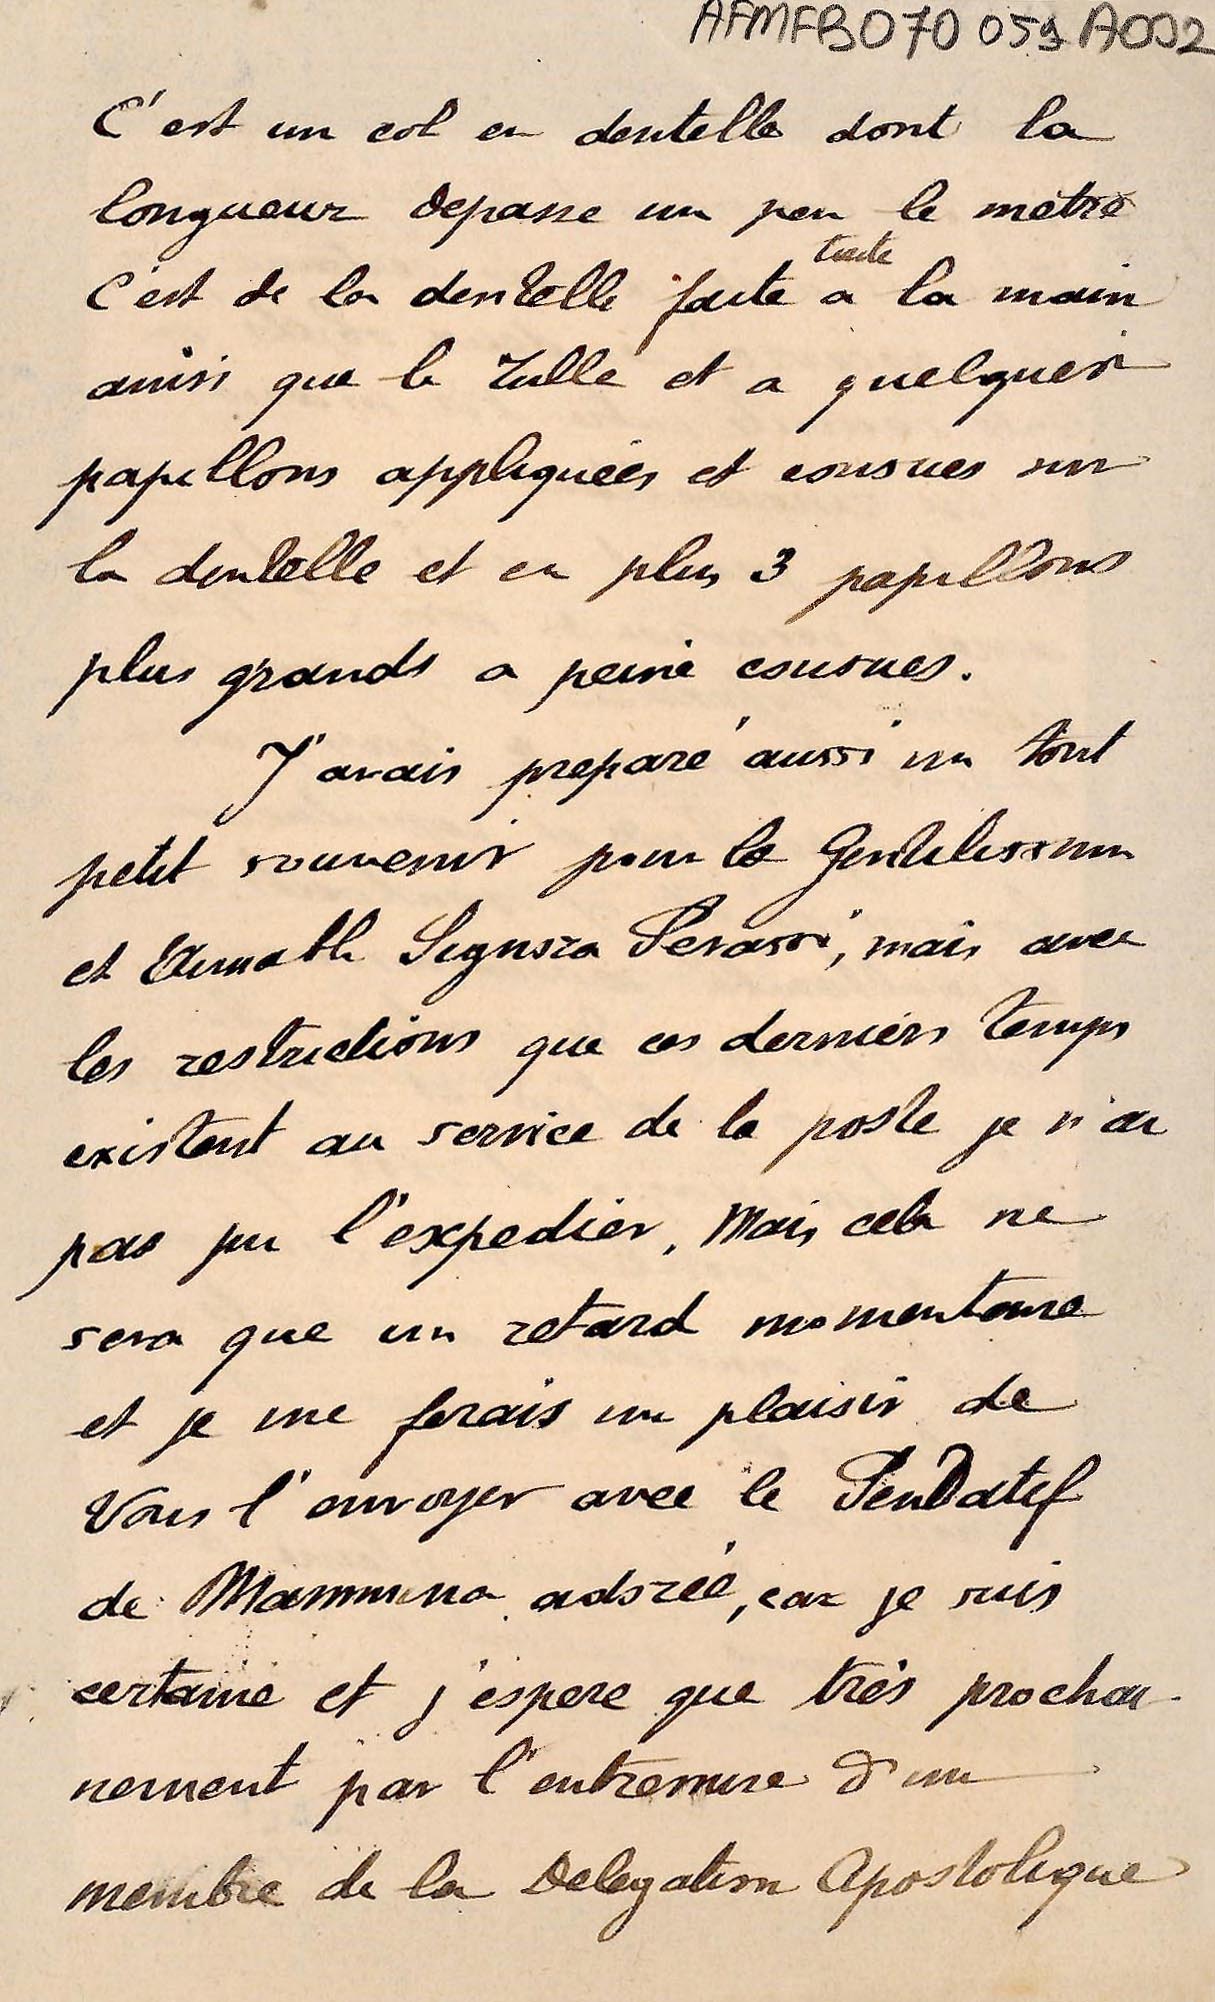 AFMFB070 059 A002
C'est un col en dentelle dont la
longueur depasse un peu le metre
toute
C'est de la dentelle faite a la main
ainsi que le tulle et a quelques
papillons appliqueés et cousues sur
la dentelle et en plus 3 papillons
plus grands a peine cousues.
J'avais preparé aussi un tout
petit souvenir pour la Gentilissima
et Aimable Signora Perassi, mais avec
les restrictions que ces derniers temps
existent au service de la poste je n'ai
pas pu l'expedier. Mais cela ne
sera que un retard momentane
et je me ferais un plaisir de
Vous l'envoyer avec le Pendatif
de Mammina adorée, car je suis
certaine et j'espere que très prochai-
nement par l'entremise d'un
membre de la Delegation Apostolique